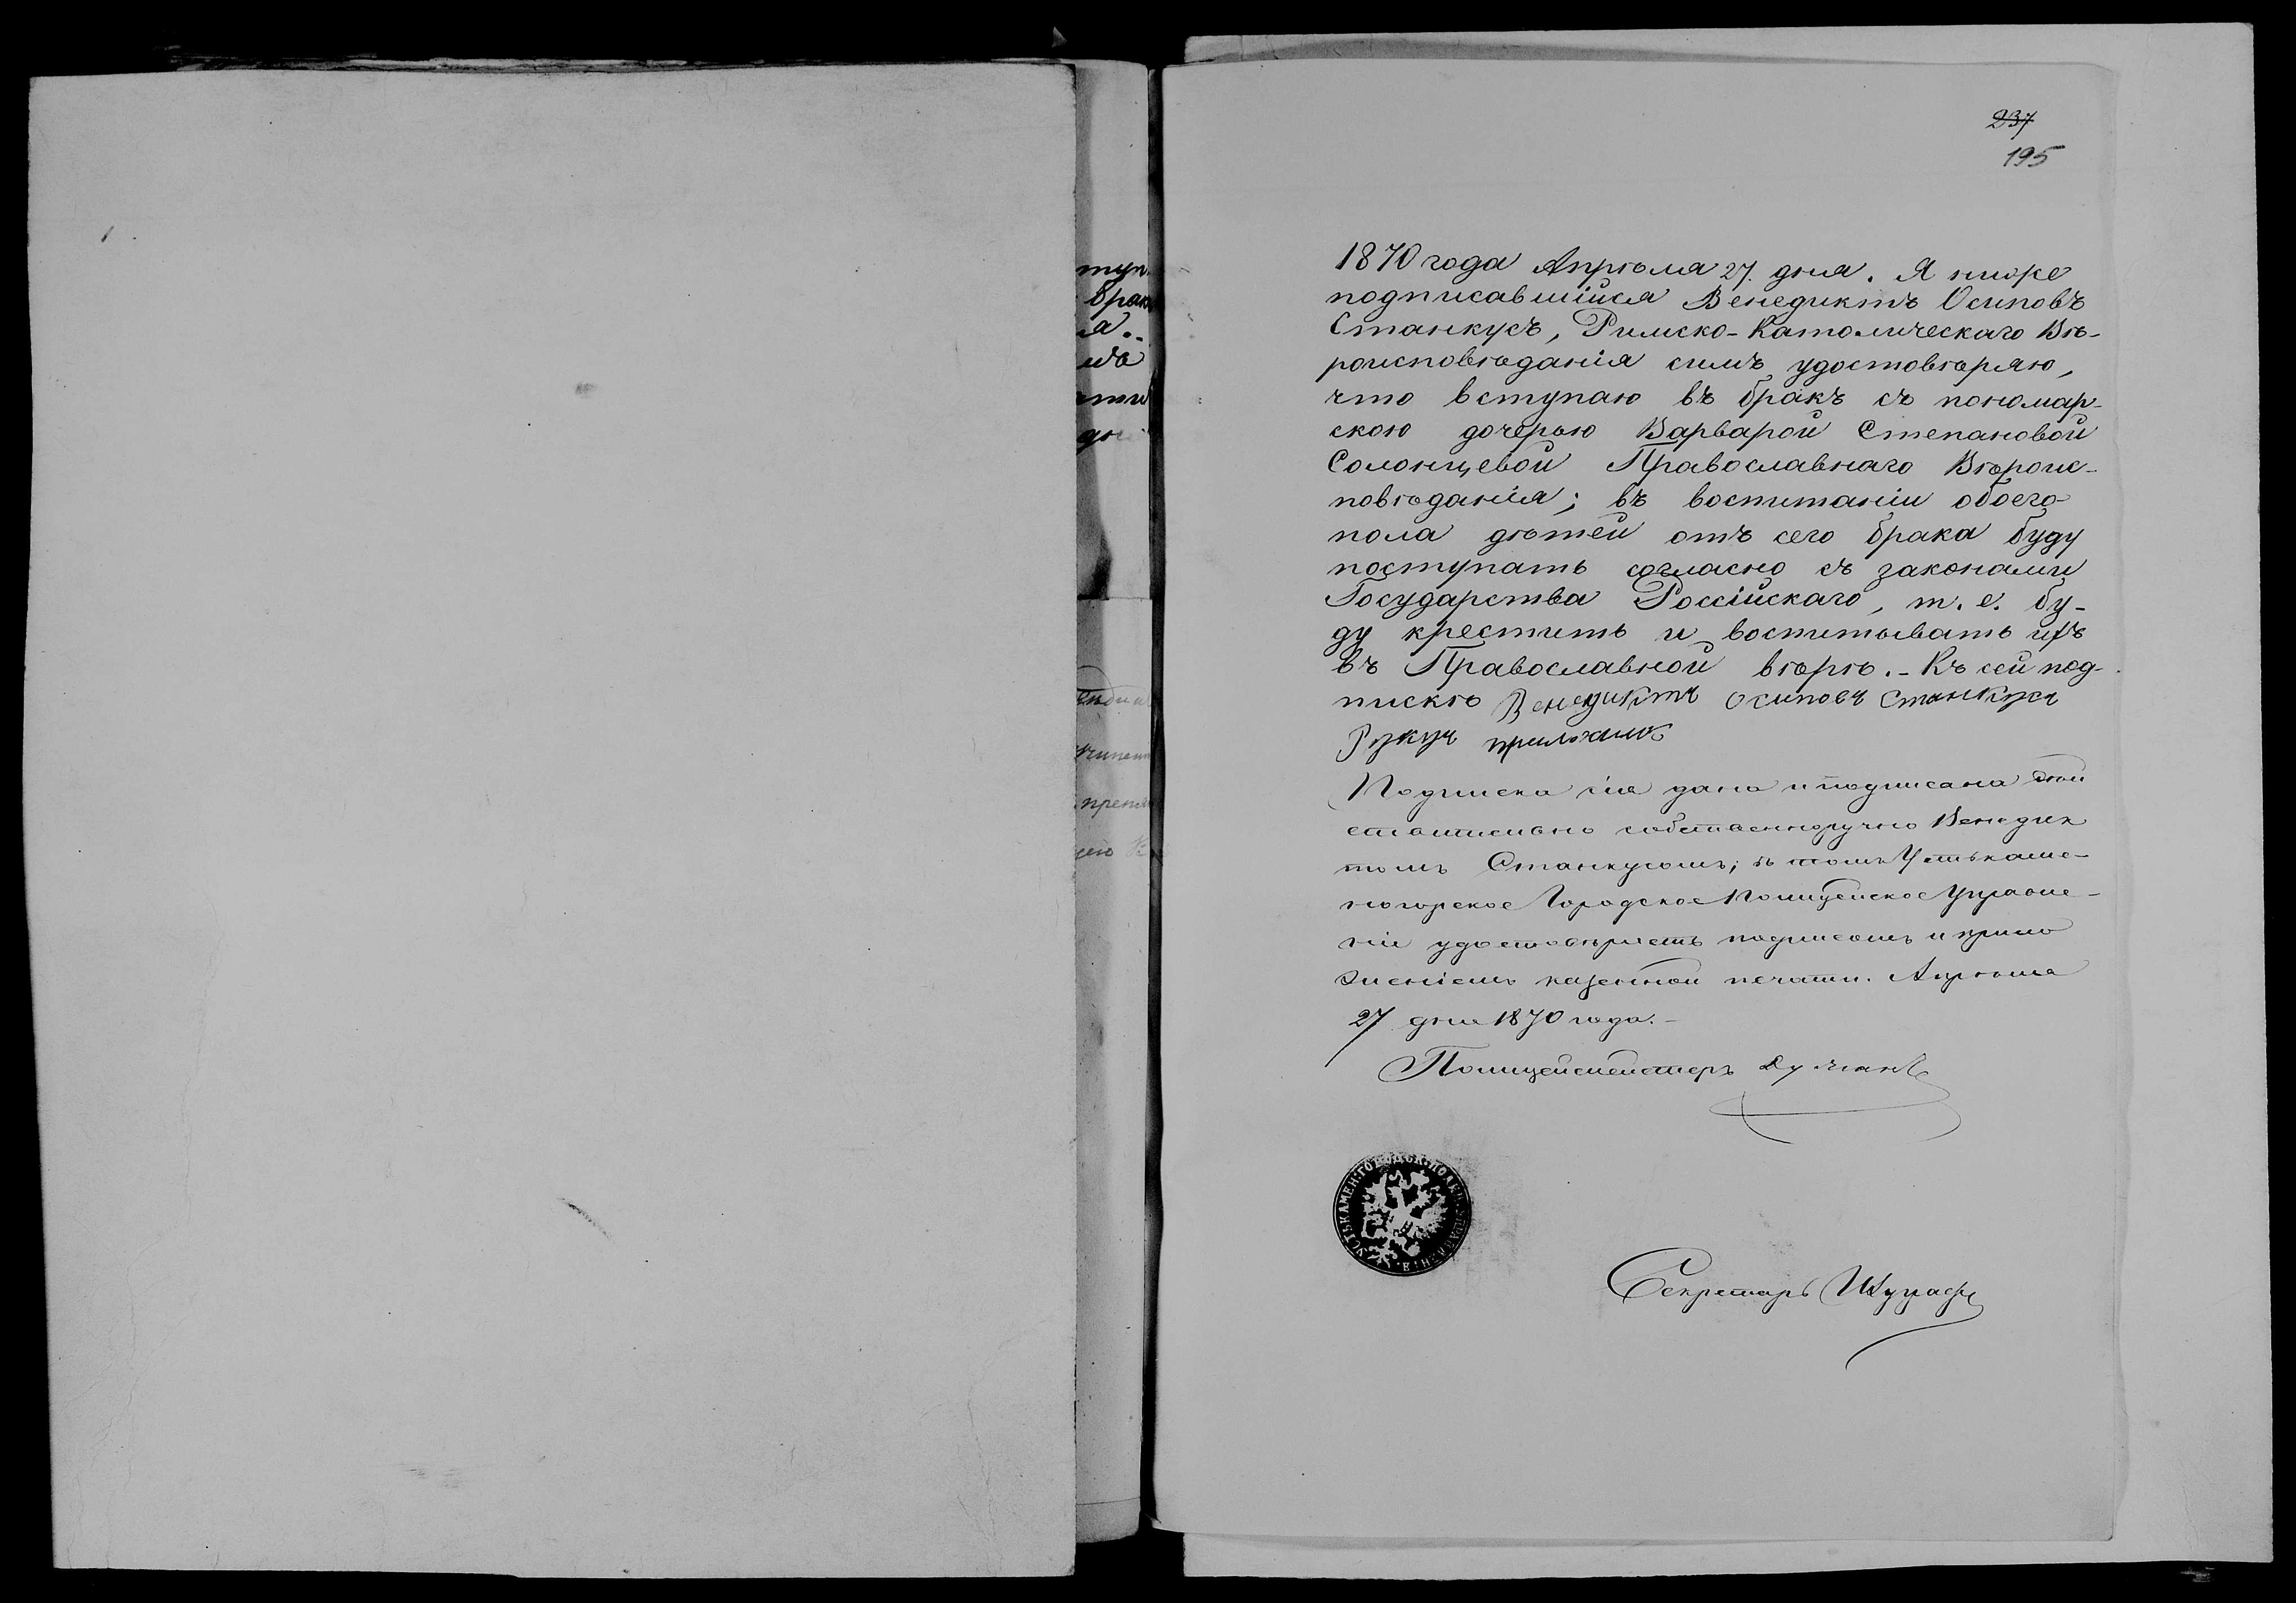 237
195
1870 года Апрѣля 27. дня. Я ниже
подписавшійся Венедиктъ Осиповъ
Станкусъ, Римско-Католическаго Вѣ-
роисповѣданія симъ удостовѣряю,
что вступаю въ бракъ съ пономар-
скою дочерью Варварой Степановой
Солонцевой Православнаго Вѣроис-
повѣданія; въ воспитаніи обоего
пола дѣтей отъ сего брака буду
поступать согласно съ законами
Государства Россійскаго, т. е. бу-
ду крестить и воспитывать ихъ
въ Православной вѣрѣ. - Къ сей под-
пискѣ Венедиктъ Осиповъ Станкусъ
Руку приложилъ
Подписка сія дана и подписана дѣй
ствительно собственноручно Венедик
томъ Станкусомъ; въ томъ Устькаме-
ногорское Городское Полицейское Управле-
ніе удостовѣряетъ подписомъ и прило
женіемъ казенной печати. Апрѣля
27 дня 1870 года. -
Полицеймейстеръ
УСТЬКАМЕН. ГОРОДСК. ПОЛИЦ. УПРАВЛЕНІЯ
Секретарь
туп
брак
я.